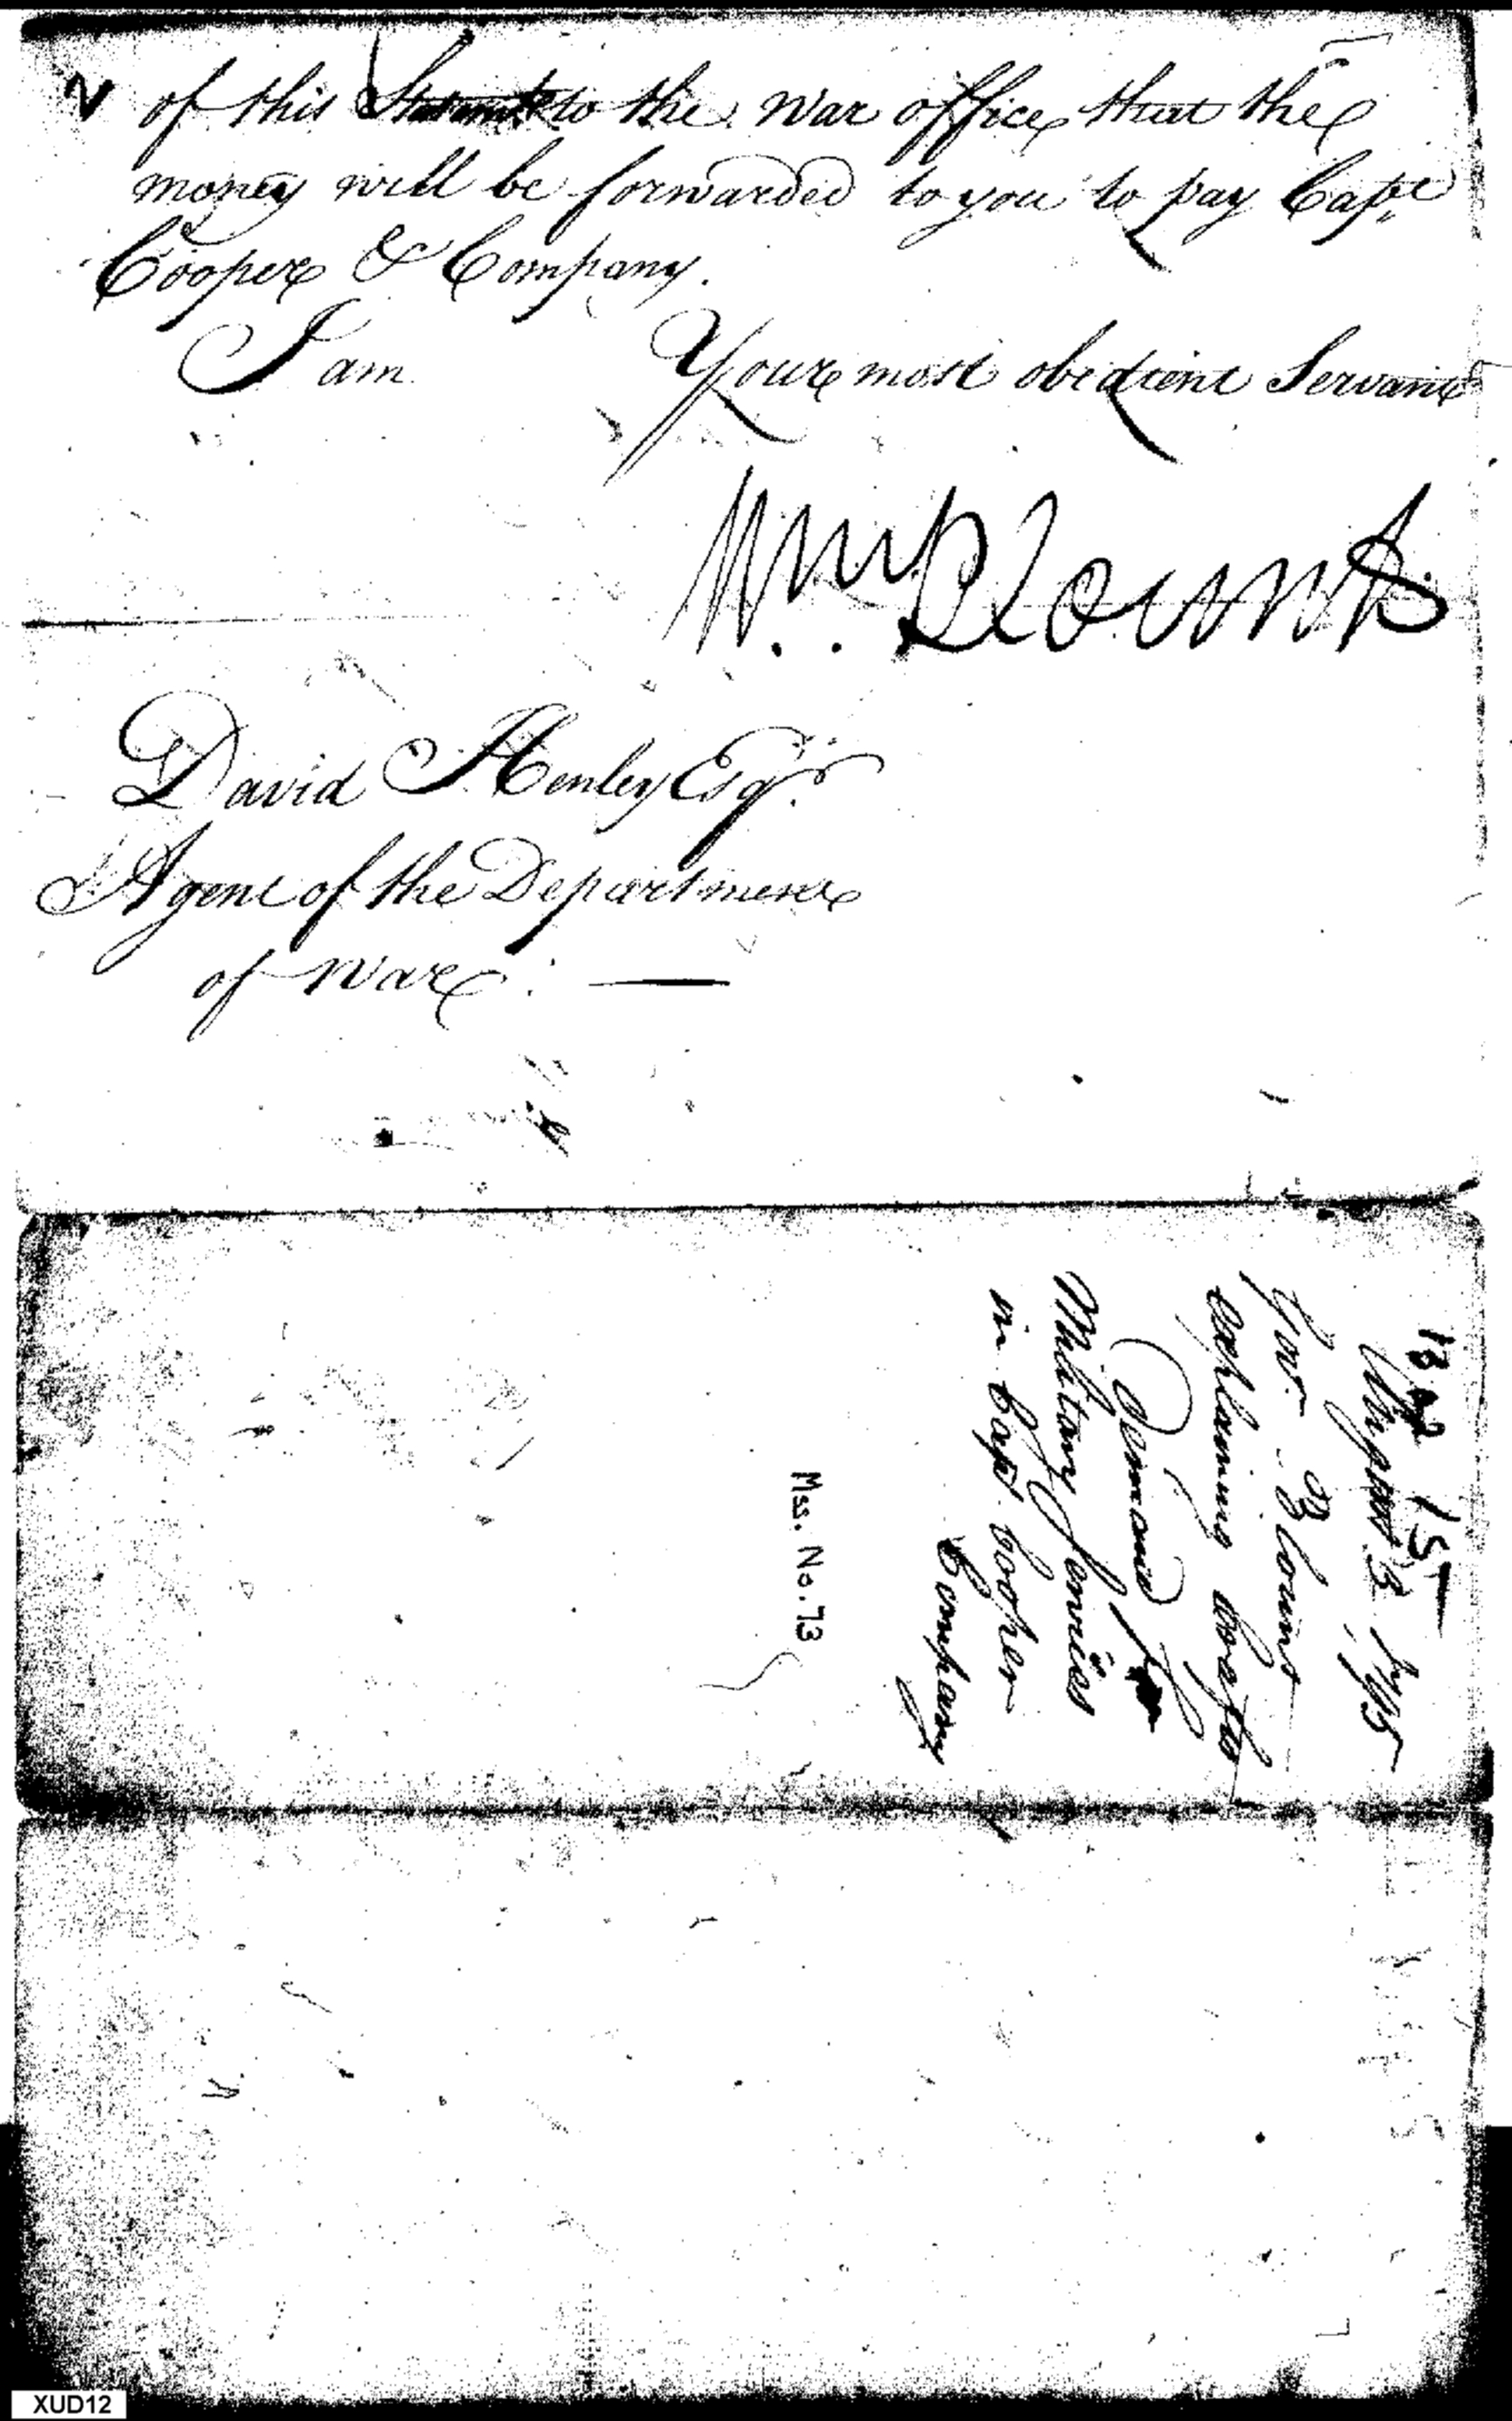 2 of this Statement to the War office that the
money will be forwarded to you to pay Capt
Cooper & Company.
I am Your most obedient Servant
Wm. Blount
David Henley Esqr.
Agent of the Department
of War. —
15
August 3 1795
Gov. Blount
explaining Coopers
Demand for
Military Services
in Capt Cooper
Company
Mss. No. 73
XUD12